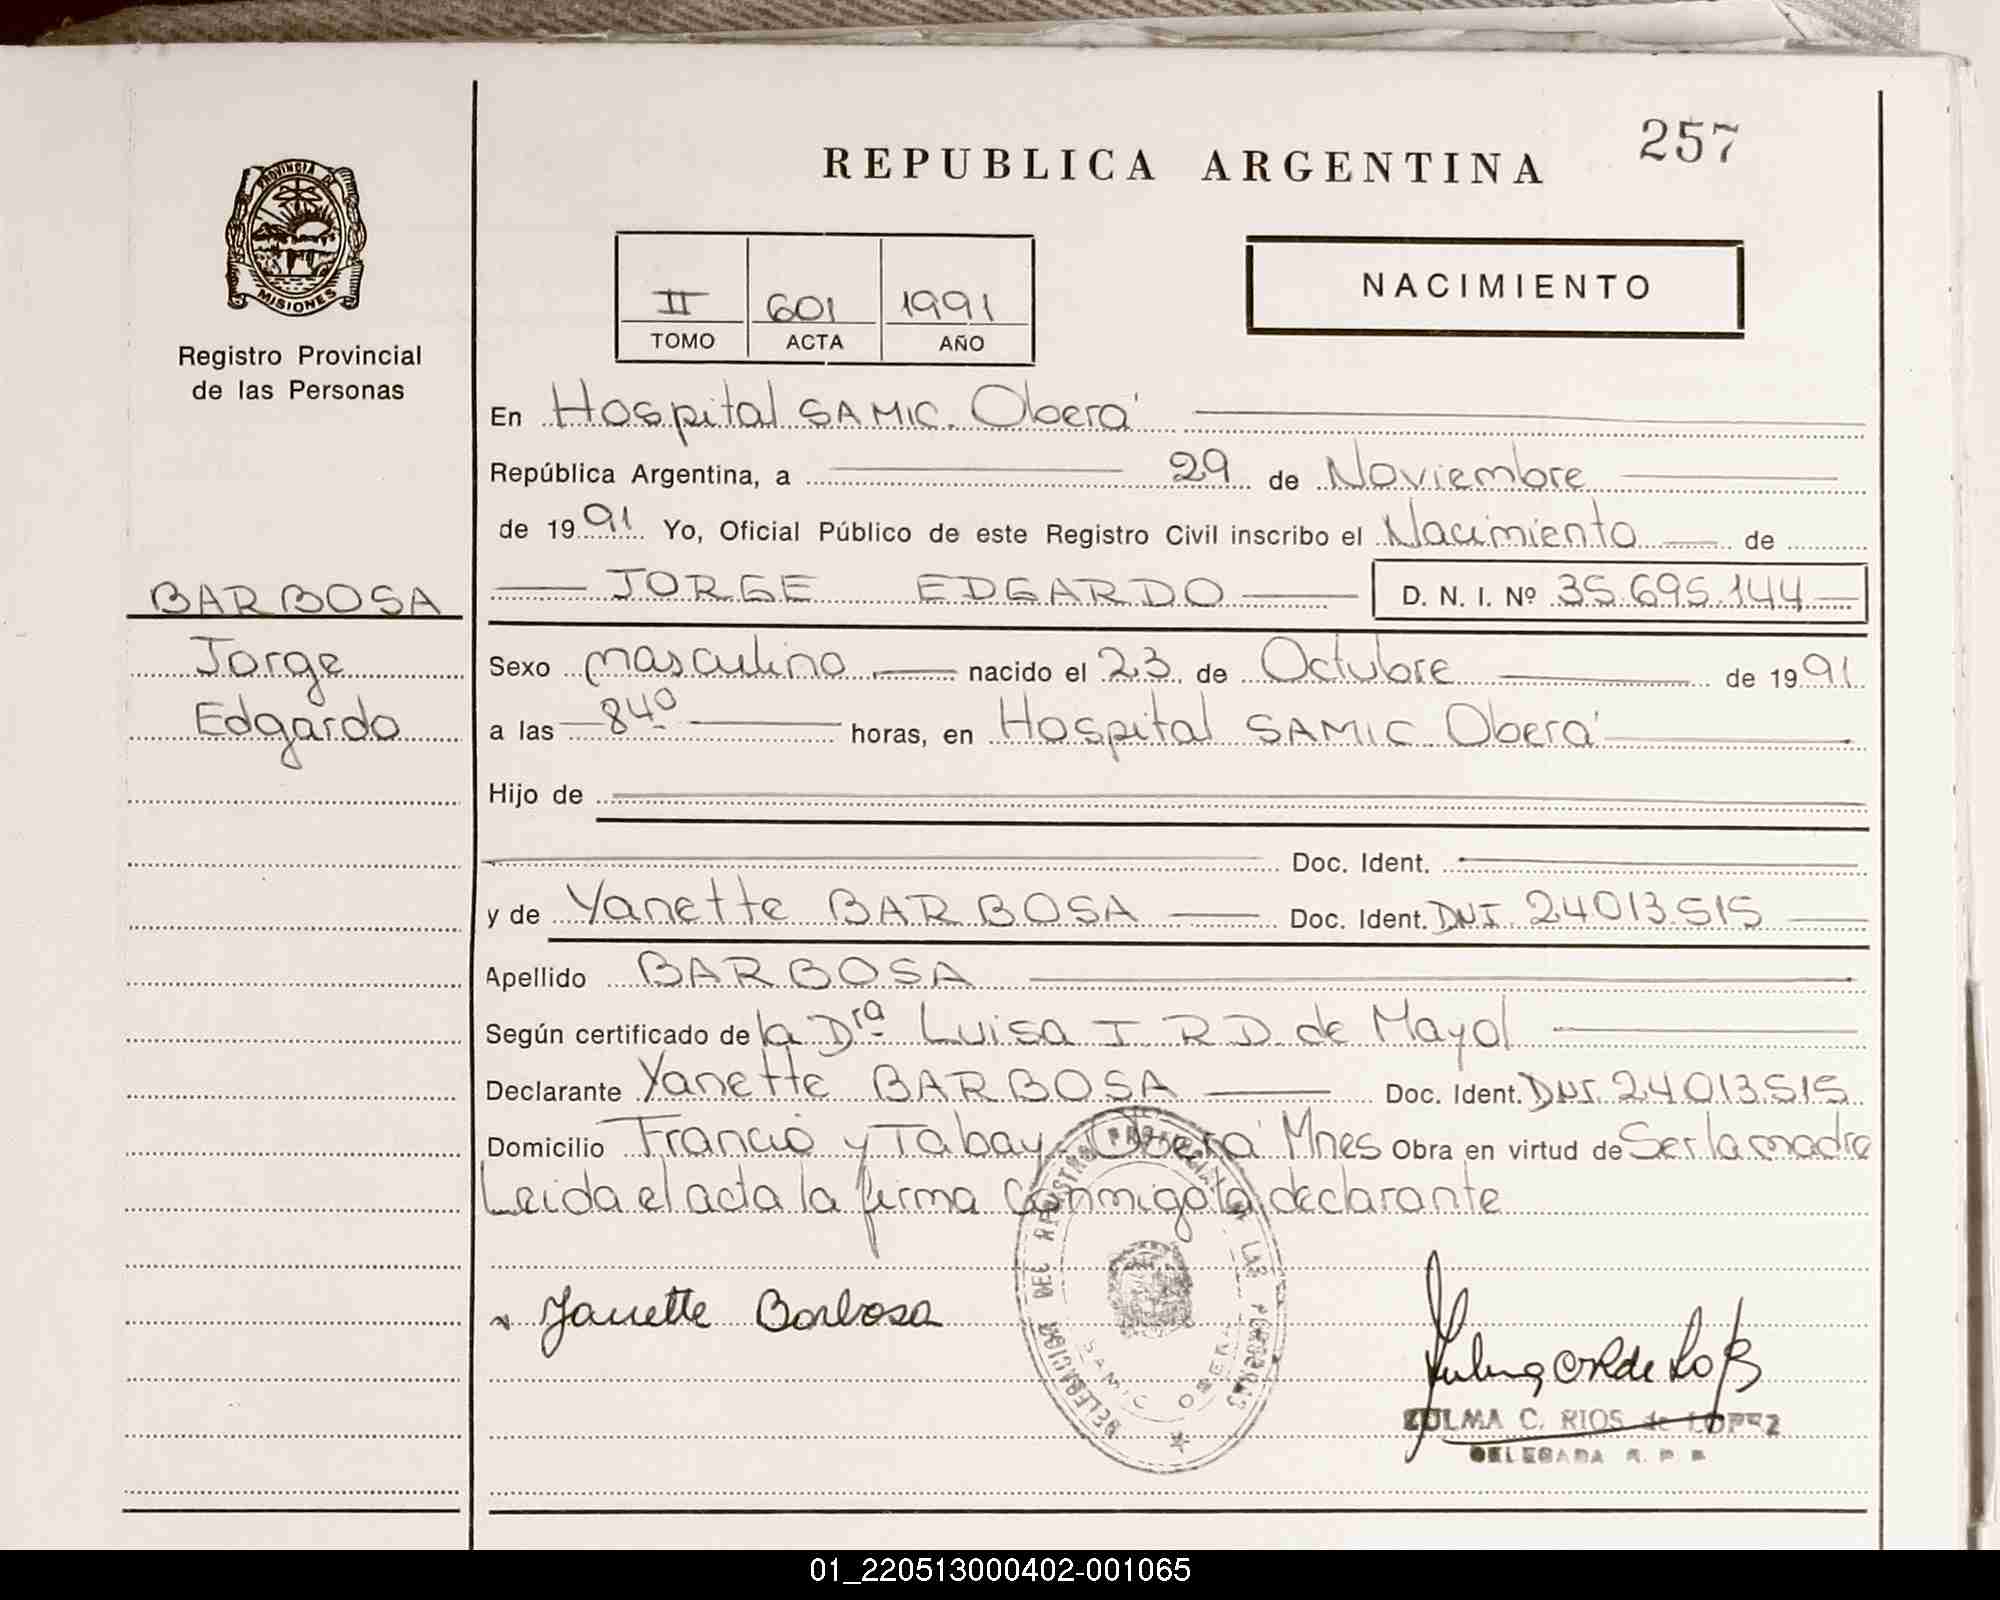 257
REPUBLICA ARGENTINA
PROVINCIA DE
MISIONES
Registro Provincial
de las Personas
NACIMIENTO
II 601 1991
TOMO ACTA AÑO
En Hospital SAMIC. Oberá
República Argentina, a 29 de Noviembre
de 1991 Yo, Oficial Público de este Registro Civil inscribo el Nacimiento de
JORGE EDGARDO D. N. I. Nº 35.695.144
BARBOSA
Jorge
Edgardo
Sexo masculino nacido el 23 de Octubre de 1991
a las 8 40 horas, en Hospital SAMIC Oberá
Hijo de
Doc. Ident.
y de Yanette BARBOSA Doc. Ident. DNI. 24013.515
Apellido BARBOSA
Según certificado de la Dra Luisa I. R.D. de Mayol
Declarante Yanette BARBOSA Doc. Ident. DNI. 24.013.515
Domicilio Francio y Tabay. Oberá Mnes Obra en virtud de Ser la madre
Leida el acta la firma conmigo la declarante
DELEGACION DEL REGISTRO PROVINCIAL DE LAS PERSONAS
SAMIC OBERA
Yanette Barbosa
ZULMA C. RIOS de LOPEZ
DELEGADA R. P. P.
01_220513000402-001065